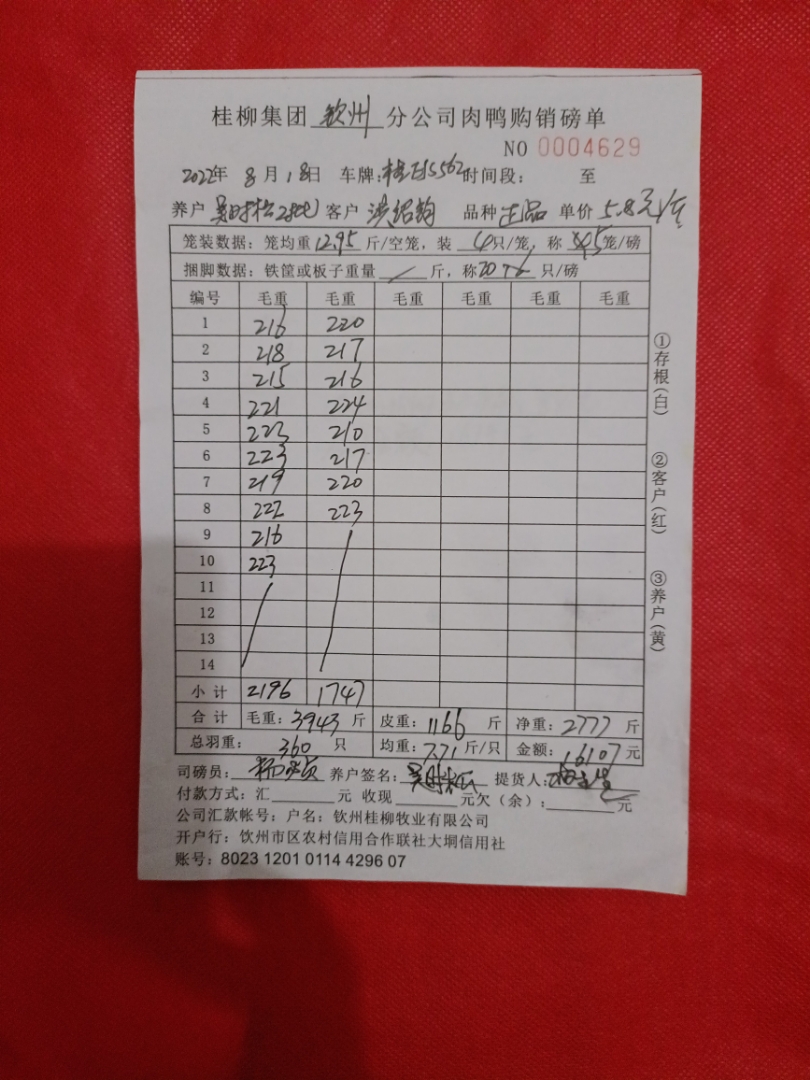 桂柳集团 钦州 分公司肉鸭购销磅单
NO 0004629
2022年 8月18日 车牌: 时间段: 至
养户 客户 品种 单价 5.8元/斤
笼装数据: 笼均重 12.95 斤/空笼, 装 4 只/笼, 称 5 笼/磅
捆脚数据: 铁筐或板子重量 / 斤, 称 只/磅
编号 毛重 毛重 毛重 毛重 毛重 毛重
1 216 220
2 218 217
3 215 216
4 221 224
5 223 210
6 223 217
7 219 220
8 222 223
9 216
10 223
11
12
13
14
小计 2196 1747
合计 毛重: 3943 斤 皮重: 1166 斤 净重: 2777 斤
总羽重: 360 只 均重: 7.71 斤/只 金额: 16107 元
司磅员: 养户签名: 提货人:
付款方式: 汇 元 收现 元欠(余): 元
公司汇款帐号: 户名: 钦州桂柳牧业有限公司
开户行: 钦州市区农村信用合作联社大垌信用社
账号: 8023 1201 0114 4296 07
①存根(白)
②客户(红)
③养户(黄)